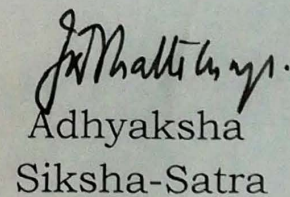 Adhyaksha
Siksha-Satra